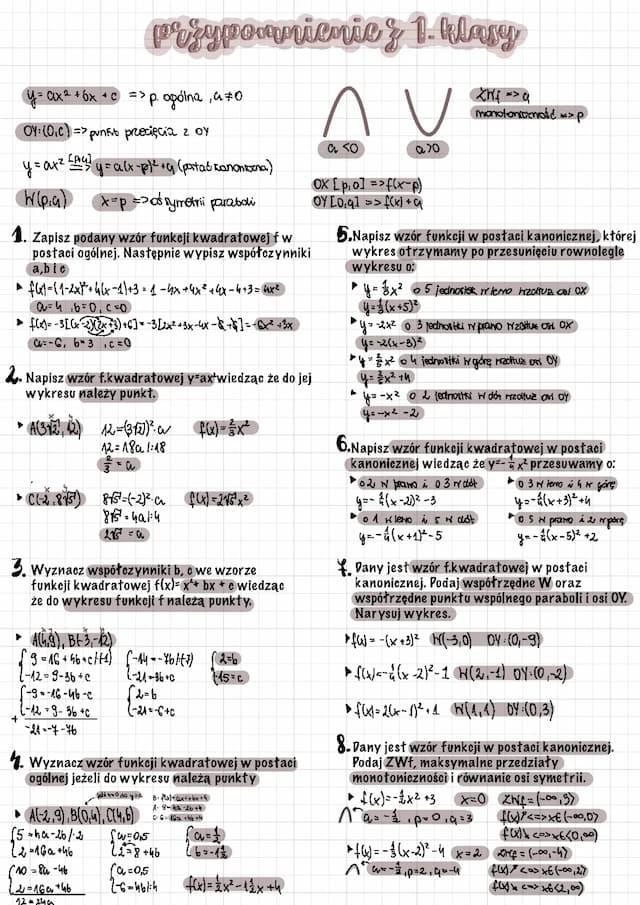 przypomnienie z 1. klasy
y = ax² + bx + c => p. ogólna, a≠0
OY:(0,c) => punkt przecięcia z OY
y = ax² => y = a(x-p)² + q (postać kanoniczna)
W(p,q) x = p => oś symetrii paraboli
a<0 a>0
ZWf => q
monotoniczność => p
OX [p,0] => f(x-p)
OY [0,q] => f(x) + q
1. Zapisz podany wzór funkcji kwadratowej f w
postaci ogólnej. Następnie wypisz współczynniki
a, b i c
f(x) = (1-2x)² + 4(x-1)+3 = 1 - 4x + 4x² + 4x - 4 + 3 = 4x²
a = 4, b = 0, c = 0
a = -6, b = 3, c = 0
2. Napisz wzór f.kwadratowej y=ax² wiedząc że do jej
wykresu należy punkt.
A(3√2, 12) 12 = (3√2)²·a f(x) = 2/3 x²
12 = 18a |:18
2/3 = a
C(-2, 8√5) 8√5 = (-2)²·a f(x) = 2√5 x²
8√5 = 4a |:4
2√5 = a
3. Wyznacz współczynniki b, c we wzorze
funkcji kwadratowej f(x)= x²+ bx + c wiedząc
że do wykresu funkcji f należą punkty.
A(4,9), B(-3,-12)
9 = 16 + 4b + c /(-1) -14 = -7b /(-7) 2 = b
-12 = 9 - 3b + c -21 = -3b + c -15 = c
-9 = -16 - 4b - c 2 = b
-12 = 9 - 3b + c -21 = -6 + c
-21 = -7 - 7b
4. Wyznacz wzór funkcji kwadratowej w postaci
ogólnej jeżeli do wykresu należą punkty
A(-2,9), B(0,4), C(4,6)
5 = 4a - 2b /·2 a = 0,5 a = 1/2
2 = 16a + 4b 2 = 8 + 4b b = -1 1/2
10 = 8a - 4b a = 0,5
2 = 16a + 4b -6 = 4b |:4 f(x) = 1/2 x² - 1 1/2 x + 4
12 = 24a
5. Napisz wzór funkcji w postaci kanonicznej, której
wykres otrzymamy po przesunięciu rownolegle
wykresu o:
y = 1/3 x² o 5 jednostek w lewo wzdłuż osi OX
y = 1/3 (x+5)²
y = -2x² o 3 jednostki w prawo wzdłuż osi OX
y = -2(x-3)²
o 4 jednostki w górę wzdłuż osi OY
y = -x² o 2 jednostki w dół wzdłuż osi OY
y = -x² - 2
6. Napisz wzór funkcji kwadratowej w postaci
kanonicznej wiedząc że y=-1/4 x² przesuwamy o:
o 2 w prawo i o 3 w dół o 3 w lewo i 4 w górę
y = -1/4 (x-2)² - 3 y = -1/4 (x+3)² + 4
o 1 w lewo i 5 w dół o 5 w prawo i 2 w górę
y = -1/4 (x+1)² - 5 y = -1/4 (x-5)² + 2
7. Dany jest wzór f.kwadratowej w postaci
kanonicznej. Podaj współrzędne W oraz
współrzędne punktu wspólnego paraboli i osi OY.
Narysuj wykres.
f(x) = -(x+3)² W(-3,0) OY:(0,-9)
f(x) = -1/4 (x-2)² - 1 W(2,-1) OY:(0,-2)
f(x) = 2(x-1)² + 1 W(1,1) OY:(0,3)
8. Dany jest wzór funkcji w postaci kanonicznej.
Podaj ZWf, maksymalne przedziały
monotoniczności i równanie osi symetrii.
f(x) = -1/2 x² + 3 x=0 ZWf = (-∞,3)
a = -1/2, p = 0, q = 3 f(x)↗ <=> x∈(-∞,0)
f(x)↘ <=> x∈<0,∞)
f(x) = -1/3 (x-2)² - 4 x = 2 ZWf = (-∞,-4)
p = 2, q = -4 f(x)↗ <=> x∈(-∞,2)
f(x)↘ <=> x∈<2,∞)